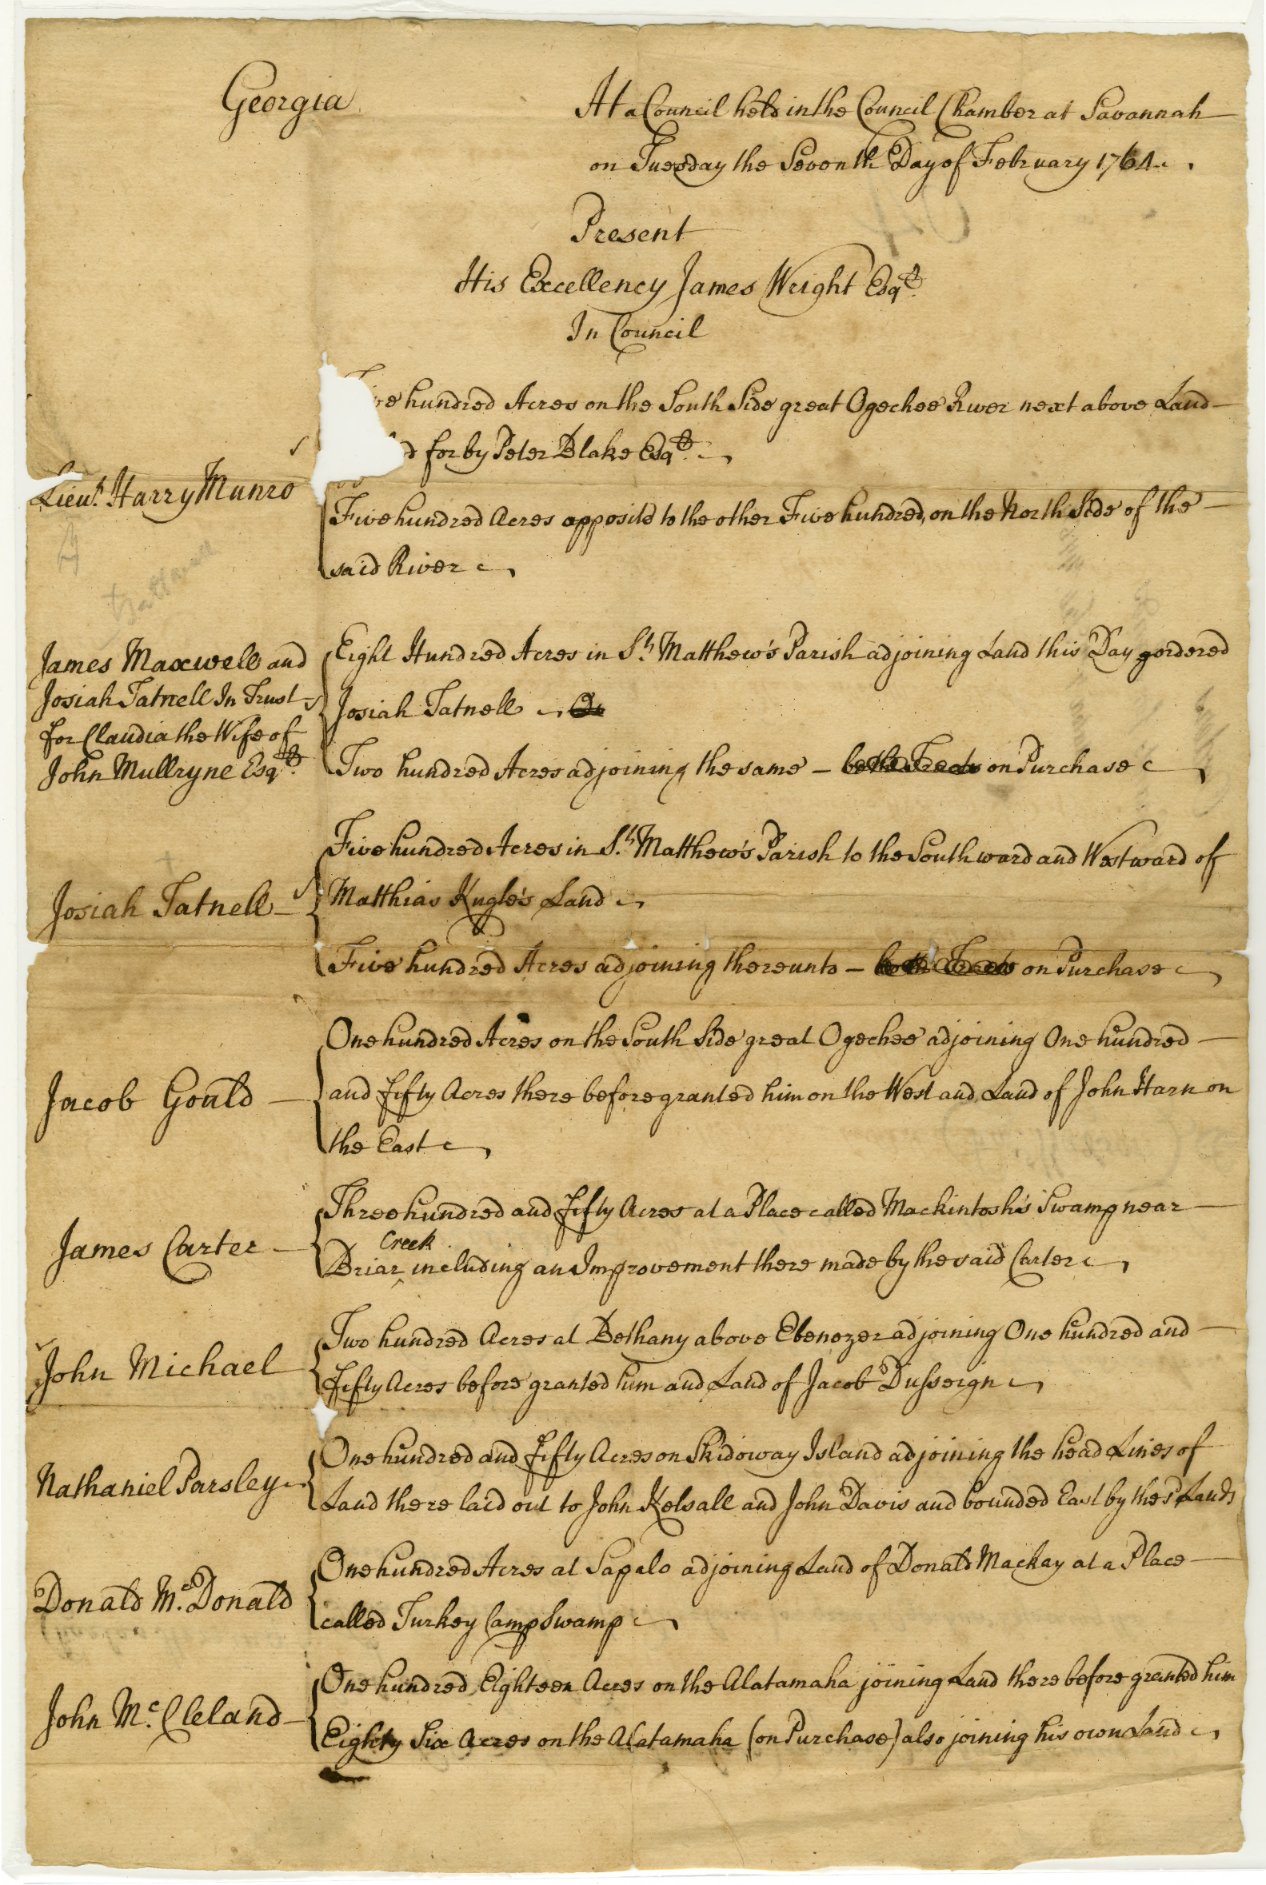 Georgia
At a Council held in the Council Chamber at Savannah
on Tuesday the Seventh Day of February 1764.
Present
His Excellency James Wright Esqr.
In Council
hundred Acres on the South Side great Ogechee River next above Land
for by Peter Blake Esqr.
Lieut. Harry Munro
Five hundred Acres opposite to the other Five hundred, on the North Side of the
said River
James Maxwell and
Josiah Tatnell In Trust
for Claudia the Wife of
John Mullryne Esqr.
Eight Hundred Acres in St. Matthew's Parish adjoining Land this Day ordered
Josiah Tatnell
Two hundred Acres adjoining the same – both Tracts on Purchase
Josiah Tatnell
Five hundred Acres in St. Matthew's Parish to the Southward and Westward of
Matthias Kugle's Land
Five hundred Acres adjoining thereunto – both Tracts on Purchase
Jacob Gould
One hundred Acres on the South Side great Ogechee adjoining One hundred
and fifty Acres there before granted him on the West and Land of John Harn on
the East
James Carter
Three hundred and fifty Acres at a Place called Mackintosh's Swamp near
Creek
Briar ‸ including an Improvement there made by the said Carter
John Michael
Two hundred Acres at Bethany above Ebenezer adjoining One hundred and
fifty Acres before granted him and Land of Jacob Dusseign
Nathaniel Parsley
One hundred and fifty Acres on Skidoway Island adjoining the head Lines of
Land there laid out to John Kelsall and John Davis and bounded East by the sd Lands
Donald Mc.Donald
One hundred Acres at Sapalo adjoining Land of Donald Mackay at a Place
called Turkey Camp Swamp
John Mc.Cleland
One hundred Eighteen Acres on the Alatamaha joining Land there before granted him
Eighty Six Acres on the Alatamaha (on Purchase) also joining his own Land